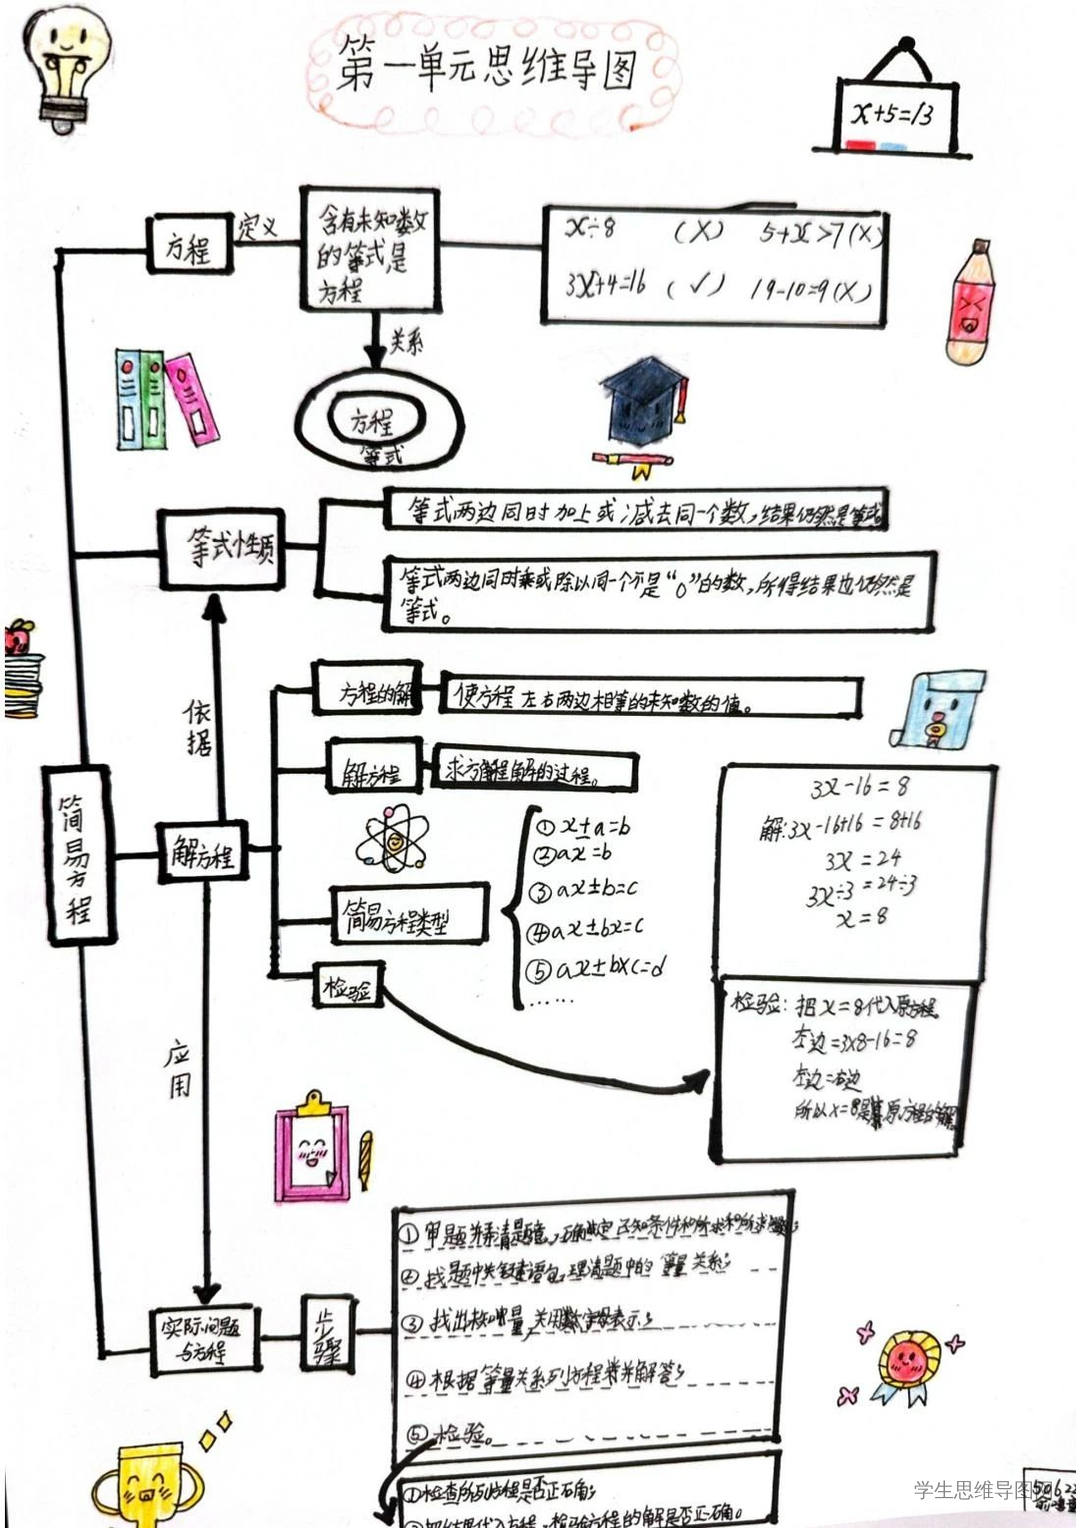 第一单元思维导图
x+5=13
方程
定义
含有未知数
的等式是
方程
x÷8 (×) 5+x>7(×)
3x+4=16 (✓) 19-10=9(×)
关系
方程
等式
等式性质
等式两边同时加上或减去同一个数,结果仍然是等式
等式两边同时乘或除以同一个不是“0”的数,所得结果也仍然是
等式。
依据
简易方程
解方程
方程的解
使方程左右两边相等的未知数的值。
解方程
求方程解的过程。
简易方程类型
① x±a=b
② ax=b
③ ax±b=c
④ ax±bx=c
⑤ ax±b×c=d
……
检验
3x-16=8
解:3x-16+16=8+16
3x=24
3x÷3=24÷3
x=8
检验:把x=8代入原方程。
左边=3×8-16=8
左边=右边
所以x=8是原方程的解
应用
实际问题
与方程
步骤
① 题 清题意,确定已知条件和所求
② 找题中关键语句,理清题中的等量关系;
③ 找出 量,用字母表示;
④ 根据等量关系列方程并解答;
⑤ 检验。
①检查所列方程是否正确;
代入方程,检验方程的解是否正确。
学生思维导图